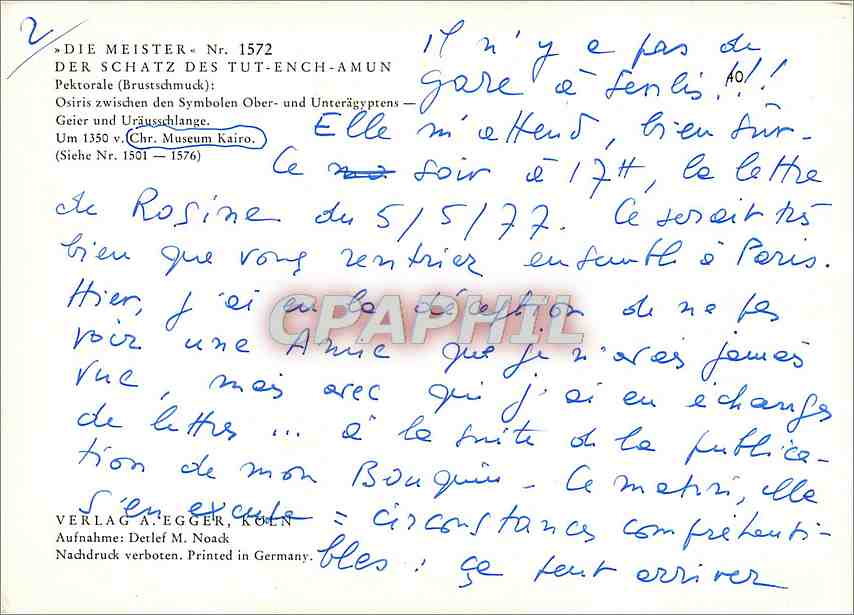 2
»DIE MEISTER« Nr. 1572
DER SCHATZ DES TUT-ENCH-AMUN
Pektorale (Brustschmuck):
Osiris zwischen den Symbolen Ober- und Unterägyptens —
Geier und Uräusschlange.
Um 1350 v. Chr. Museum Kairo.
(Siehe Nr. 1501 — 1576)
Il n'y a pas de
gare à Senlis!!!
40
Elle m'attend, bien sûr.
Ce soir à 17H, la lettre
de Rosine du 5/5/77. Ce serait très
bien que vous rentriez ensemble à Paris.
Hier, j'ai eu la déception de ne pas
voir une Amie que je n'avais jamais
vue, mais avec qui j'ai eu échanges
de lettres ... à la suite de la publica-
tion de mon Bouquin - Ce matin, elle
s'en excuse = circonstances compréhensi-
bles : ça peut arriver
CPAPHIL
VERLAG A. EGGER, KÖLN
Aufnahme: Detlef M. Noack
Nachdruck verboten. Printed in Germany.